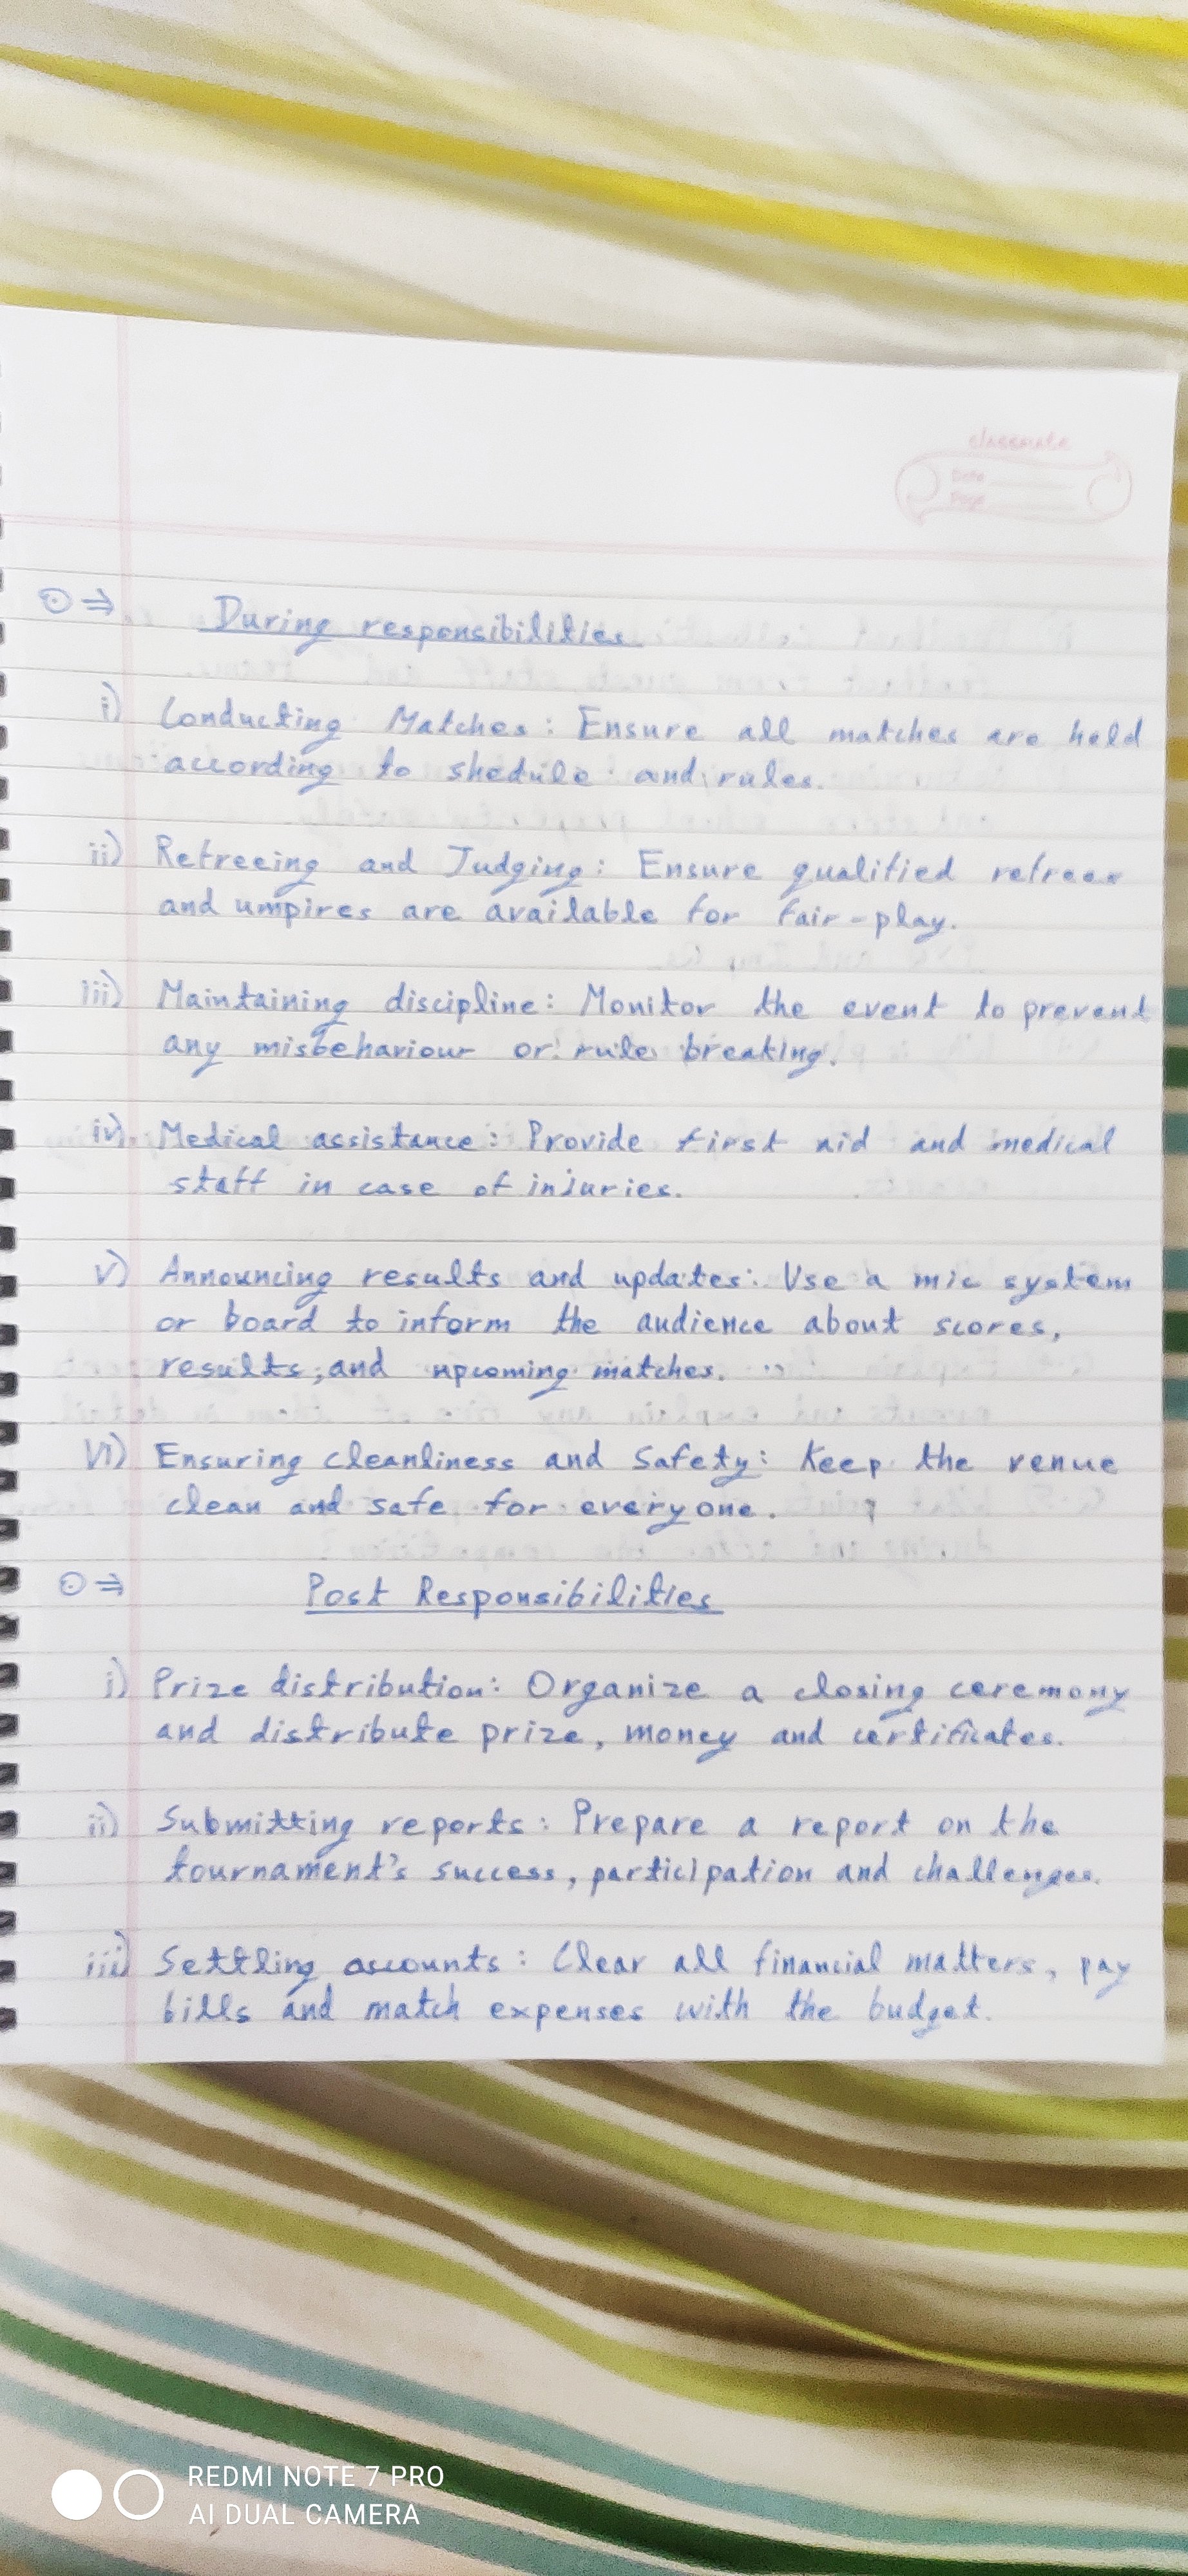 classmate
Date
Page
⊙⇒ During responsibilities
i) Conducting Matches: Ensure all matches are held
according to shedule and rules.
ii) Refreeing and Judging: Ensure qualified refrees
and umpires are available for fair-play.
iii) Maintaining discipline: Monitor the event to prevent
any misbehaviour or rule breaking.
iv) Medical assistance: Provide first aid and medical
staff in case of injuries.
v) Announcing results and updates: Use a mic system
or board to inform the audience about scores,
results, and upcoming matches.
vi) Ensuring cleanliness and safety: Keep the venue
clean and safe for everyone.
⊙⇒ Post Responsibilities
i) Prize distribution: Organize a closing ceremony
and distribute prize, money and certificates.
ii) Submitting reports: Prepare a report on the
tournament's success, participation and challenges.
iii) Settling accounts: Clear all financial matters, pay
bills and match expenses with the budget.
REDMI NOTE 7 PRO
AI DUAL CAMERA